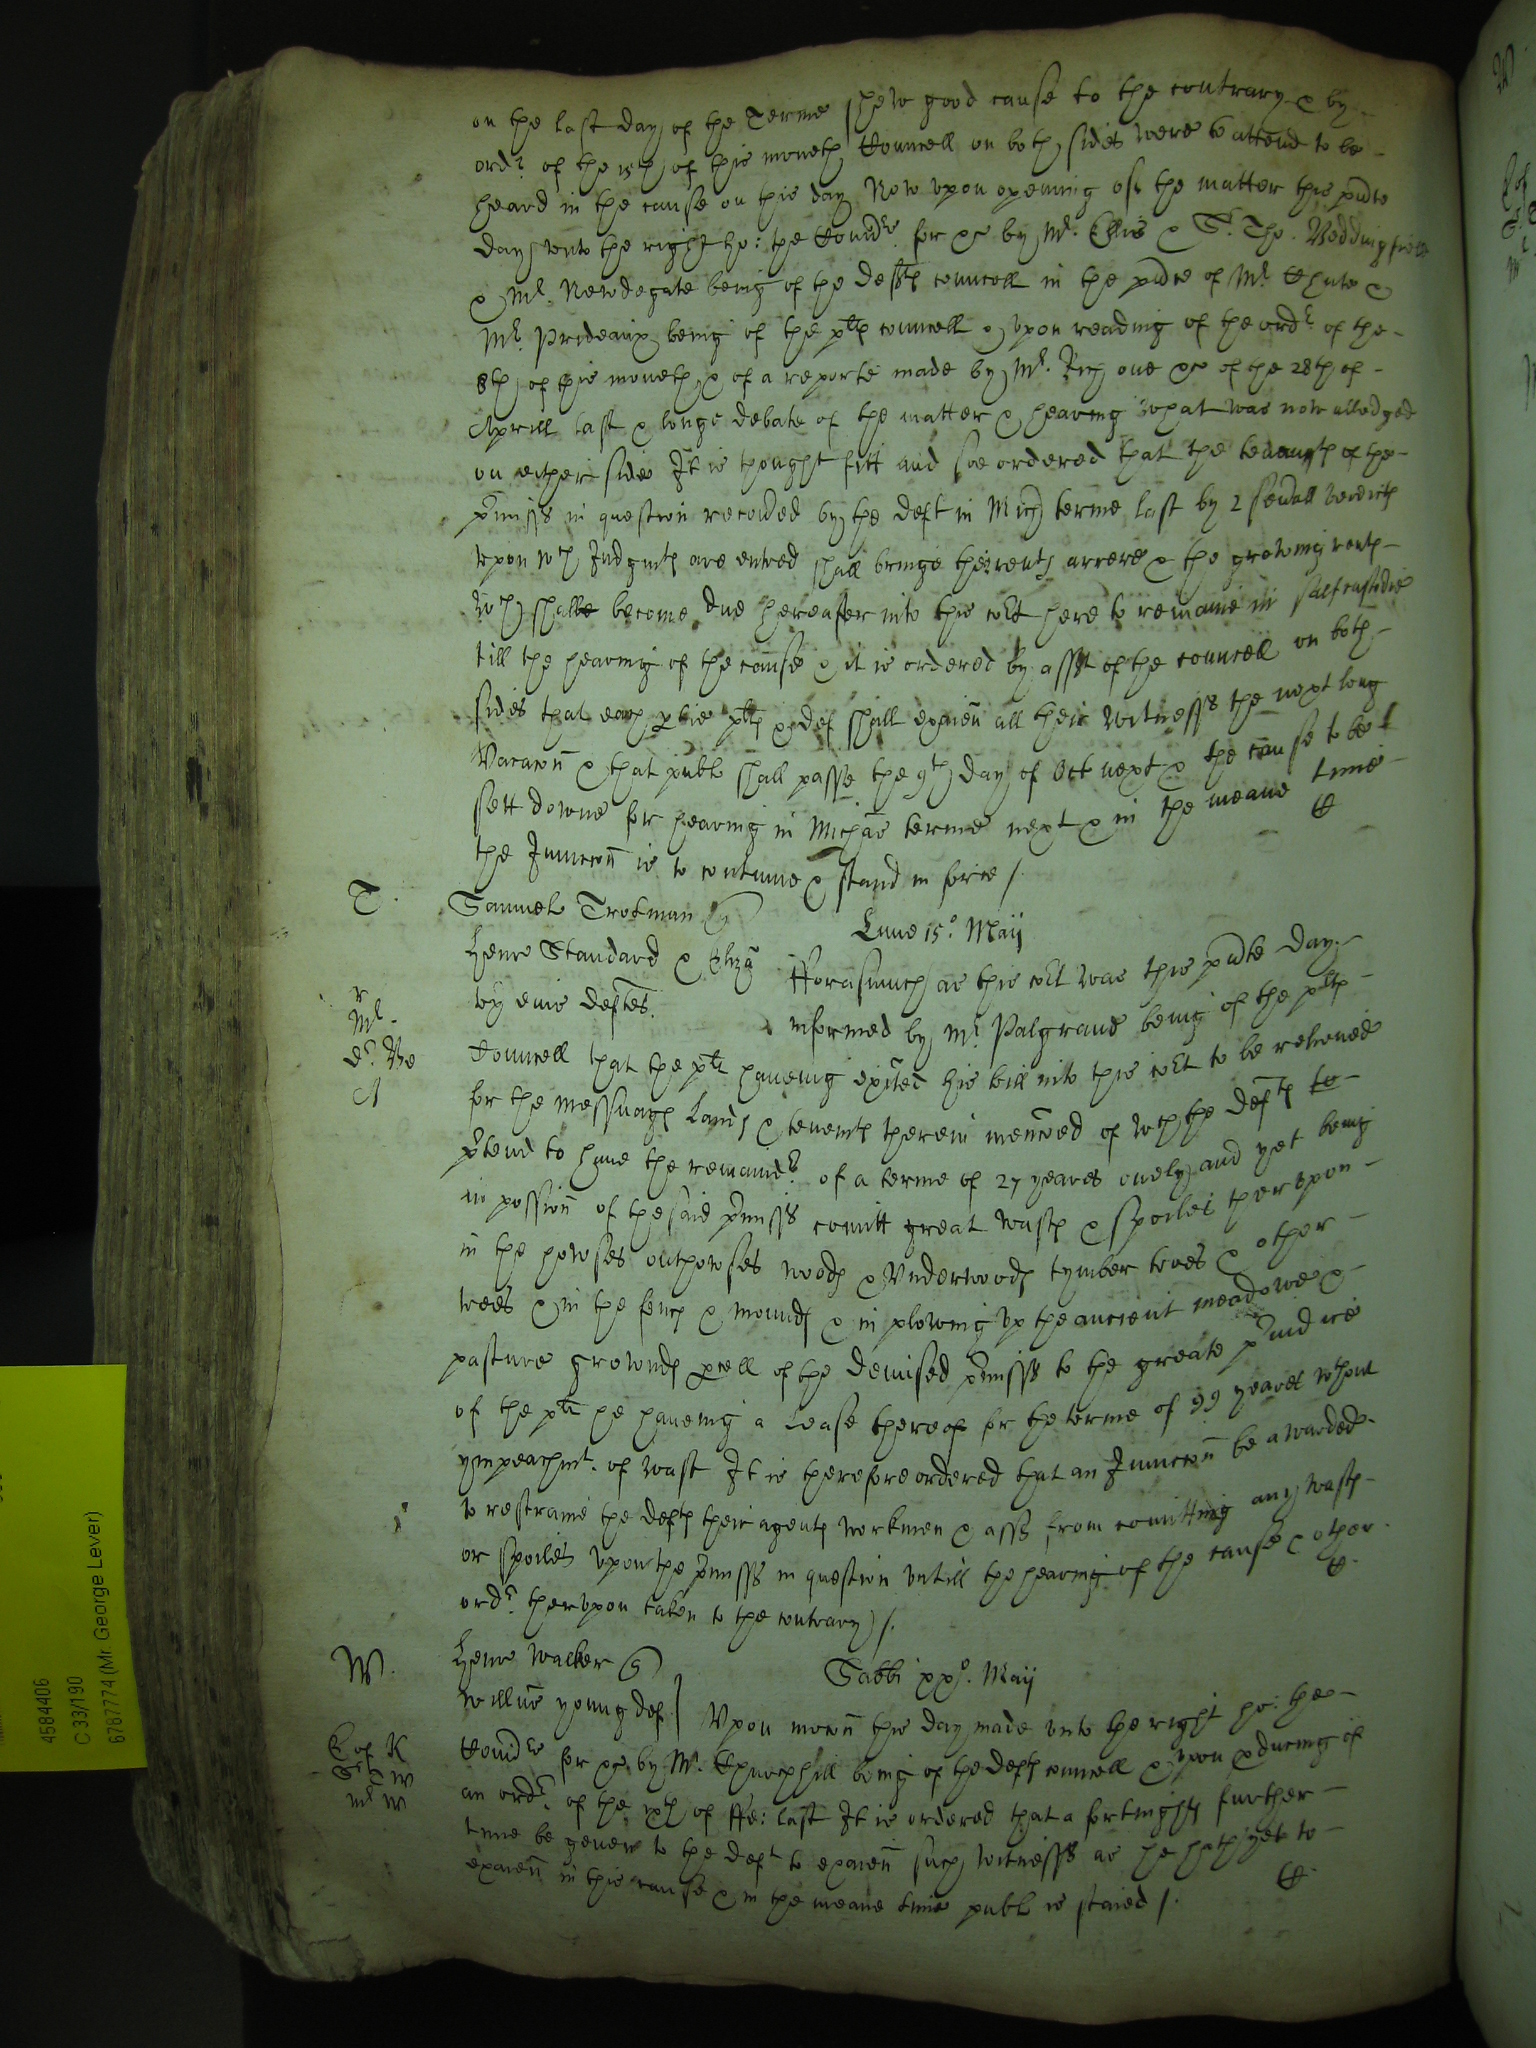 on the last day of the Terme shew good cause to the contrary & by
ordr. of the 15th of this moneth Councell on both sides were to attend to be
heard in the cause on this day Now upon opening of the matter this pnte
day unto the right ho: the Comrs. for &c by Mr. Ellis & Sr. Tho. Beddingfield
& Mr. Newdegate being of the deftes councell in the pnce of Mr. Chute &
Mr. Prideaux being of the pltes councell & upon reading of the ordr. of the
8th of this moneth & of a reporte made by Mr. Rich one &c of the 28th of
Aprill last & longe debate of the matter & hearing what was now alledged
on either side It is thought fitt and soe ordered that the tenauntes of the
pmisss in question recoved by the deft in Mich terme last by 2 sevall verdictes
upon wch Judgmtes are entred shall bringe their rentes arrere & the growing rentes
wch shalbe become due hereafter into this cort here to remaine in safe custodie
till the hearing of the cause & it is ordered by assent of the councell on both
sides that each ptie plte & def shall examen all their witnesses the next long
Vacacon & that publ shall passe the 9th day of Oct next & the cause to be
sett downe for hearing in Michas terme next & in the meane time
the Junccon is to contynue & stand in force /.
T. Samuel Trotman q
Henr Standard & Eliza
ux eius deftes.
Lune 15o. Maij
Forasmuch as this cort was this pnte day
informed by Mr. Palgrave being of the pltes
Councell that the plt haveing exited his bill into this cort to be releived
for the messuages Landes & tenemtes therein mencoed of wch the deftes
ptend to have the remaindr. of a terme of 27 yeares onely and yet being
in possion of the said pmisss comitt great wastes & spoiles therupon
in the howses outhowses woodes & Underwoodes tymber trees & other
trees & in the fences & moundes & in plowing up the ancient meadowe &
pasture growndes pcell of the demised pmisss to the greate pjudice
of the plt he haveing a Lease thereof for the terme of 99 yeares wthout
ympeachmt. of wast It is therefore ordered that an Junccon be awarded
to restraine the deftes their agentes workmen & asss from comitting any wastes
or spoiles upon the pmisss in question untill the hearing of the cause & other
ordr. therupon taken to the contrary /.
W. Henr Walker q
Willus young def
Sabbi xxo. Maij
Upon mocon this day made unto the right ho: the
Comrs for &c by Mr. Churchill being of the deftes councell & upon pducing of
an ordr. of the xth of Fe: last It is ordered that a fortnightes further
time be geven to the deft to examen such witnesses as he hath yet to
examen in this cause & in the meane time publ is staied /.
4584406
C 33/190
6787774 (Mr George Lever)